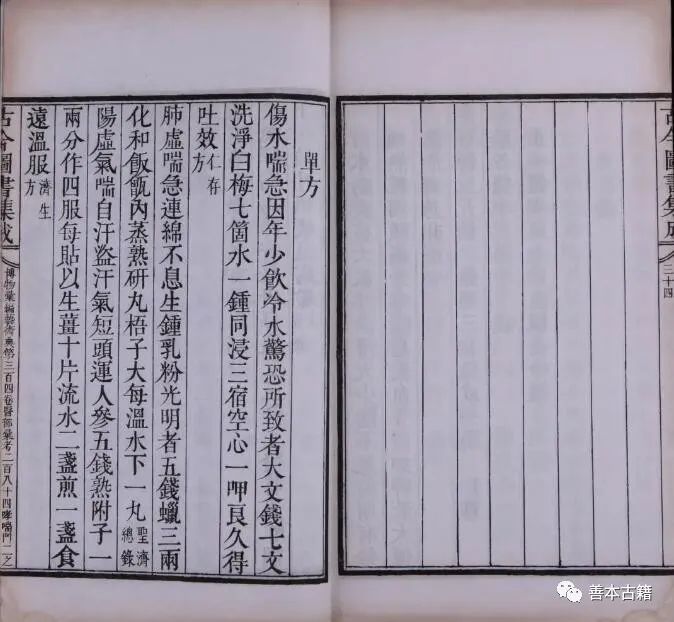 古今圖書集成
三十四
單方
傷水喘急因年少飲冷水驚恐所致者大文錢七文
洗淨白梅七箇水一鍾同浸三宿空心一呷良久得
吐效仁存方
肺虛喘急連綿不息生鍾乳粉光明者五錢蠟三兩
化和飯甑內蒸熟研丸梧子大每溫水下一丸聖濟總錄
陽虛氣喘自汗盜汗氣短頭運人參五錢熟附子一
兩分作四服每貼以生薑十片流水二盞煎一盞食
遠溫服濟生方
古今圖書集成
博物彙編藝術典第三百四卷醫部彙考二百八十四哮喘門二之
善本古籍